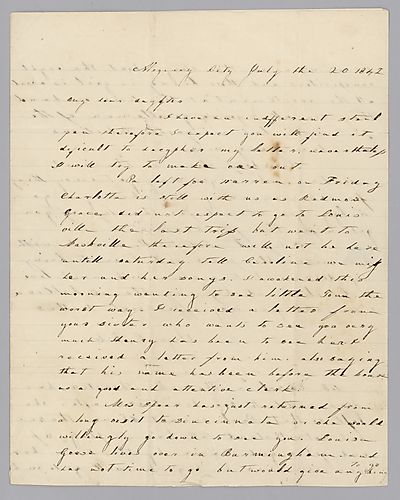 Alegeny City July the 20 1842
my dear daughter
I have an indifferent steel
pen therefore I expect you will find it
dificult to decypher my letter nevertheless
I will try to make one out.
Pa left for warren on Friday
Charlotte is still with us as Redmon
Grace did not expect to go to Louis
ville the last trip but went to
Nashville therefore will not be here
untill saturday tell Caroline we miss
her and her songs. I awakened this
morning wanting to see little Tom the
worst way. I received a letter from
your sister who wants to see you very
much Henry has been to see her I
received a letter from him also saying
that his name has been before the house
as a good and attentive clerk.
Mrs Speer has just returned from
a long visit to Cincinnata or she would
willingly go down to see you. Louisa
Gosse lives over in Burmingham and
has not time to go but would give anything
to go